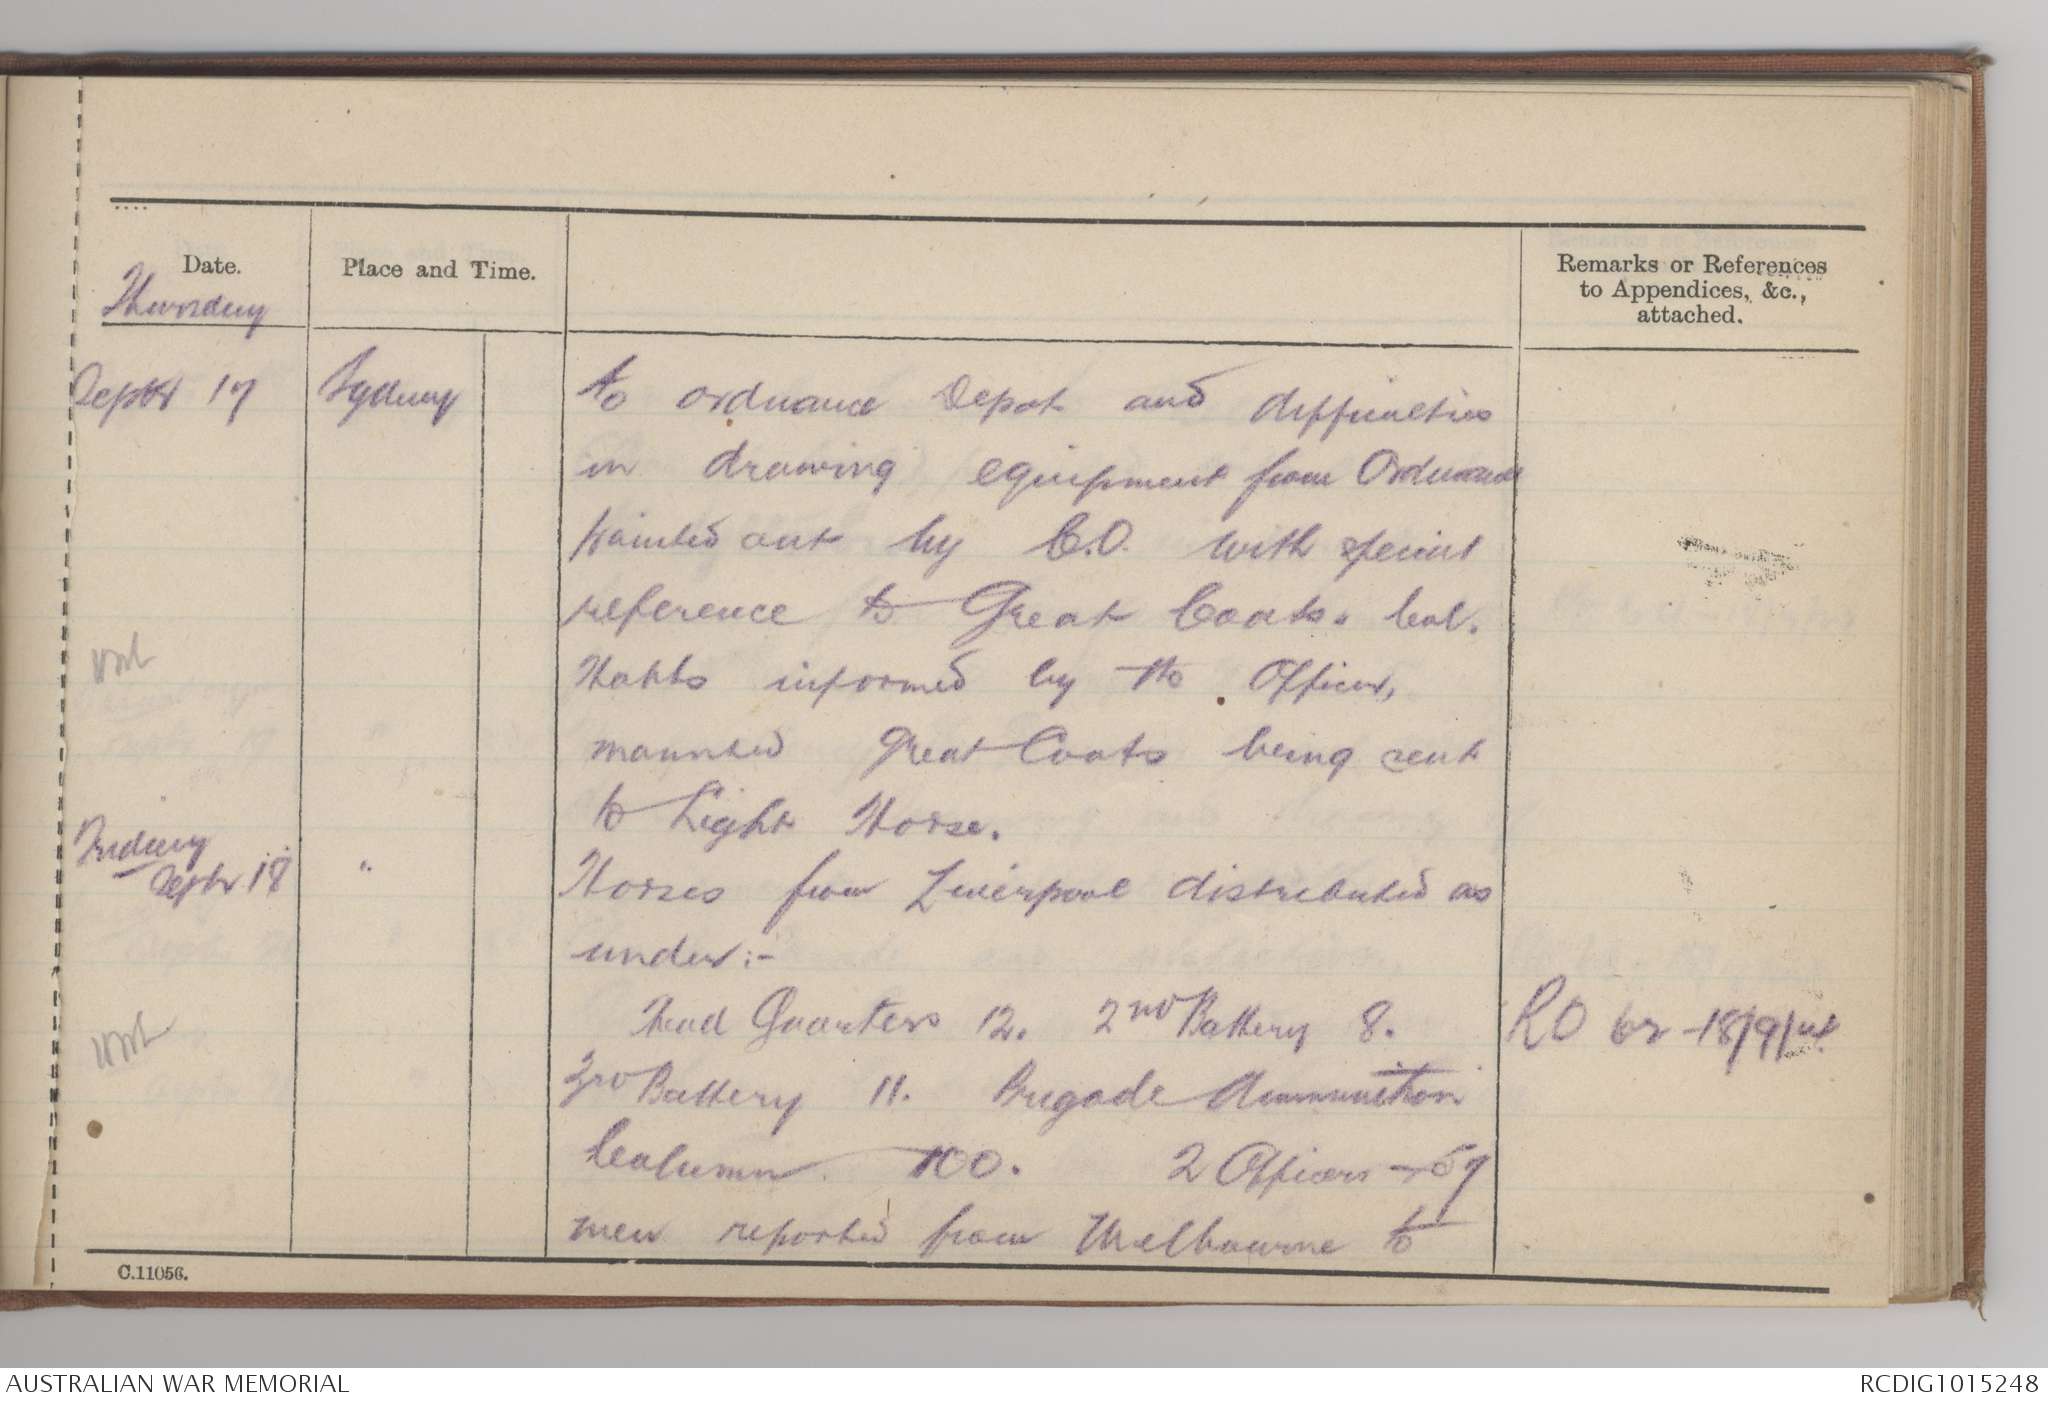 Date.
Place and Time.
Remarks or References
to Appendices, &c.,
attached.
Thursday
Septr 17
Sydney
to ordnance Depot and difficulties
in drawing equipment from Ordnance
pointed out by C.O. with special
reference to Great Coats. Col.
Hobbs informed by Officer,
mounted Great Coats being sent
to Light Horse.
Friday
Septr 18
"
Horses from Liverpool distributed as
under:-
Head Quarters 12. 2nd Battery 8.
RO 62 - 18/9/14
3rd Battery 11. Brigade Ammunition
Column. 100. 2 Officers + 57
men reported from Melbourne to
C.11056.
AUSTRALIAN WAR MEMORIAL
RCDIG1015248